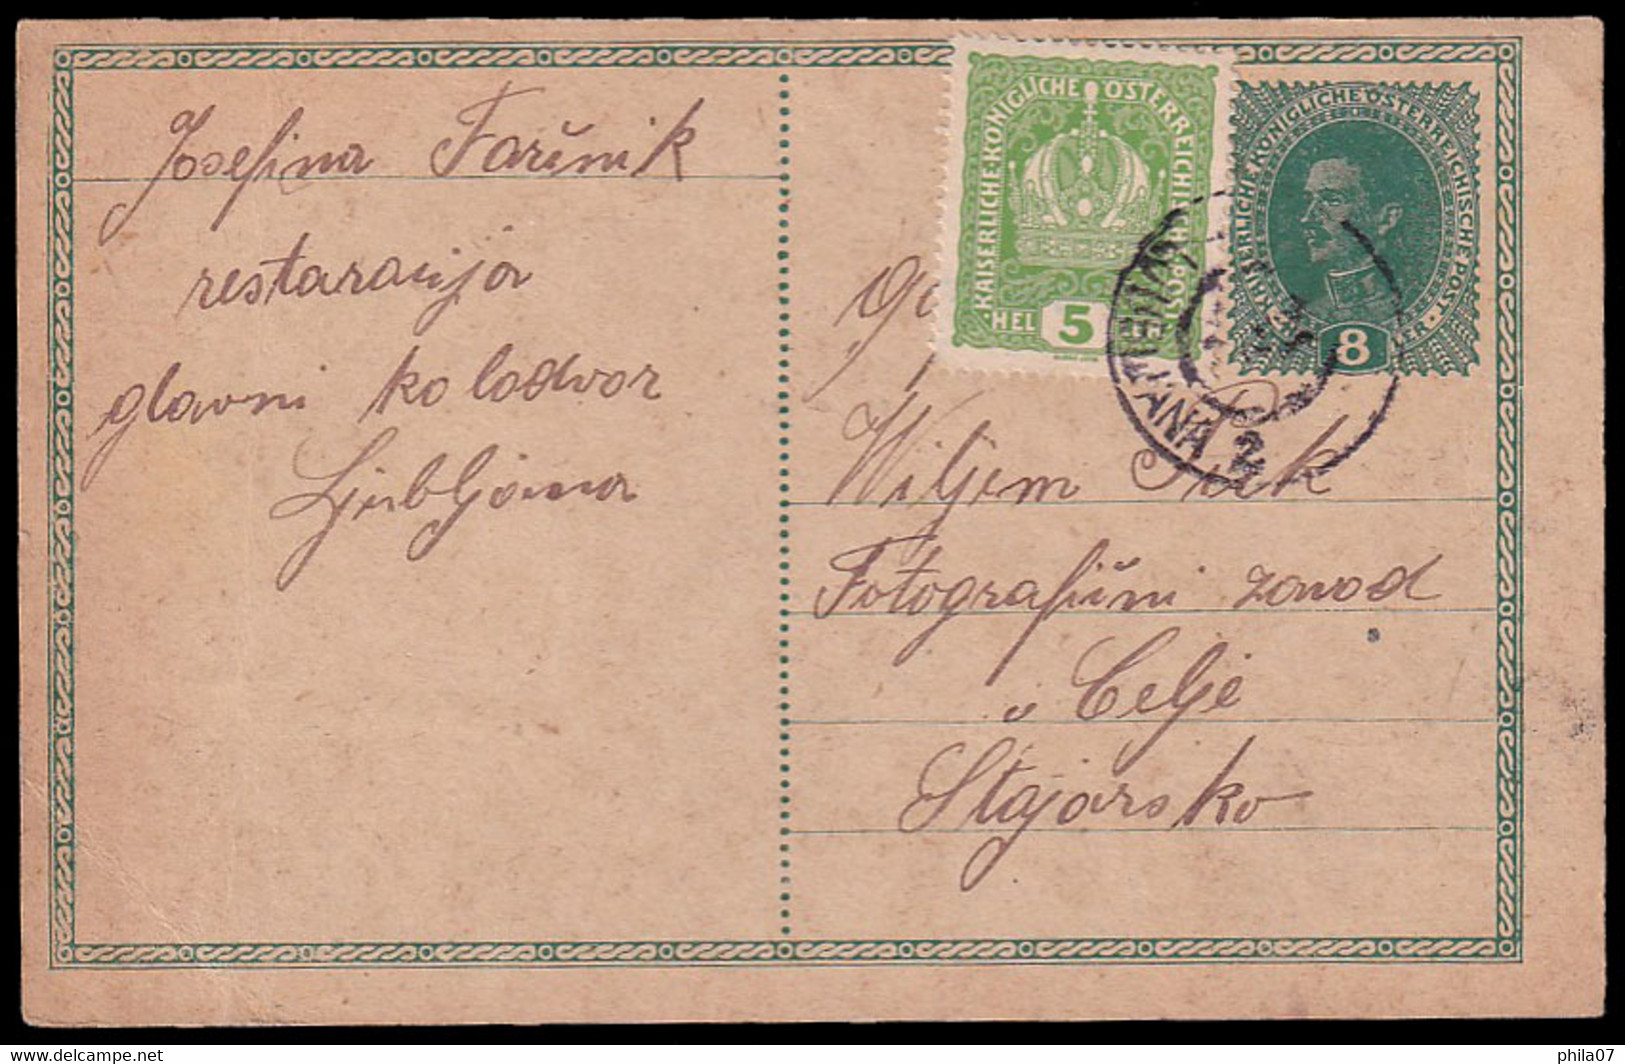 Josefina Faršnik
restaracija
glavni kolodvor
Ljubljana
KAISERLICHE·KÖNIGLICHE ÖSTERREICHISCHE POST
HEL 5 LER
KAISERLICHE KÖNIGLICHE ÖSTERREICHISCHE POST
8
ANA 2
Wiljem
Fotografični zavod
v Celje
Štajarsko
phila07